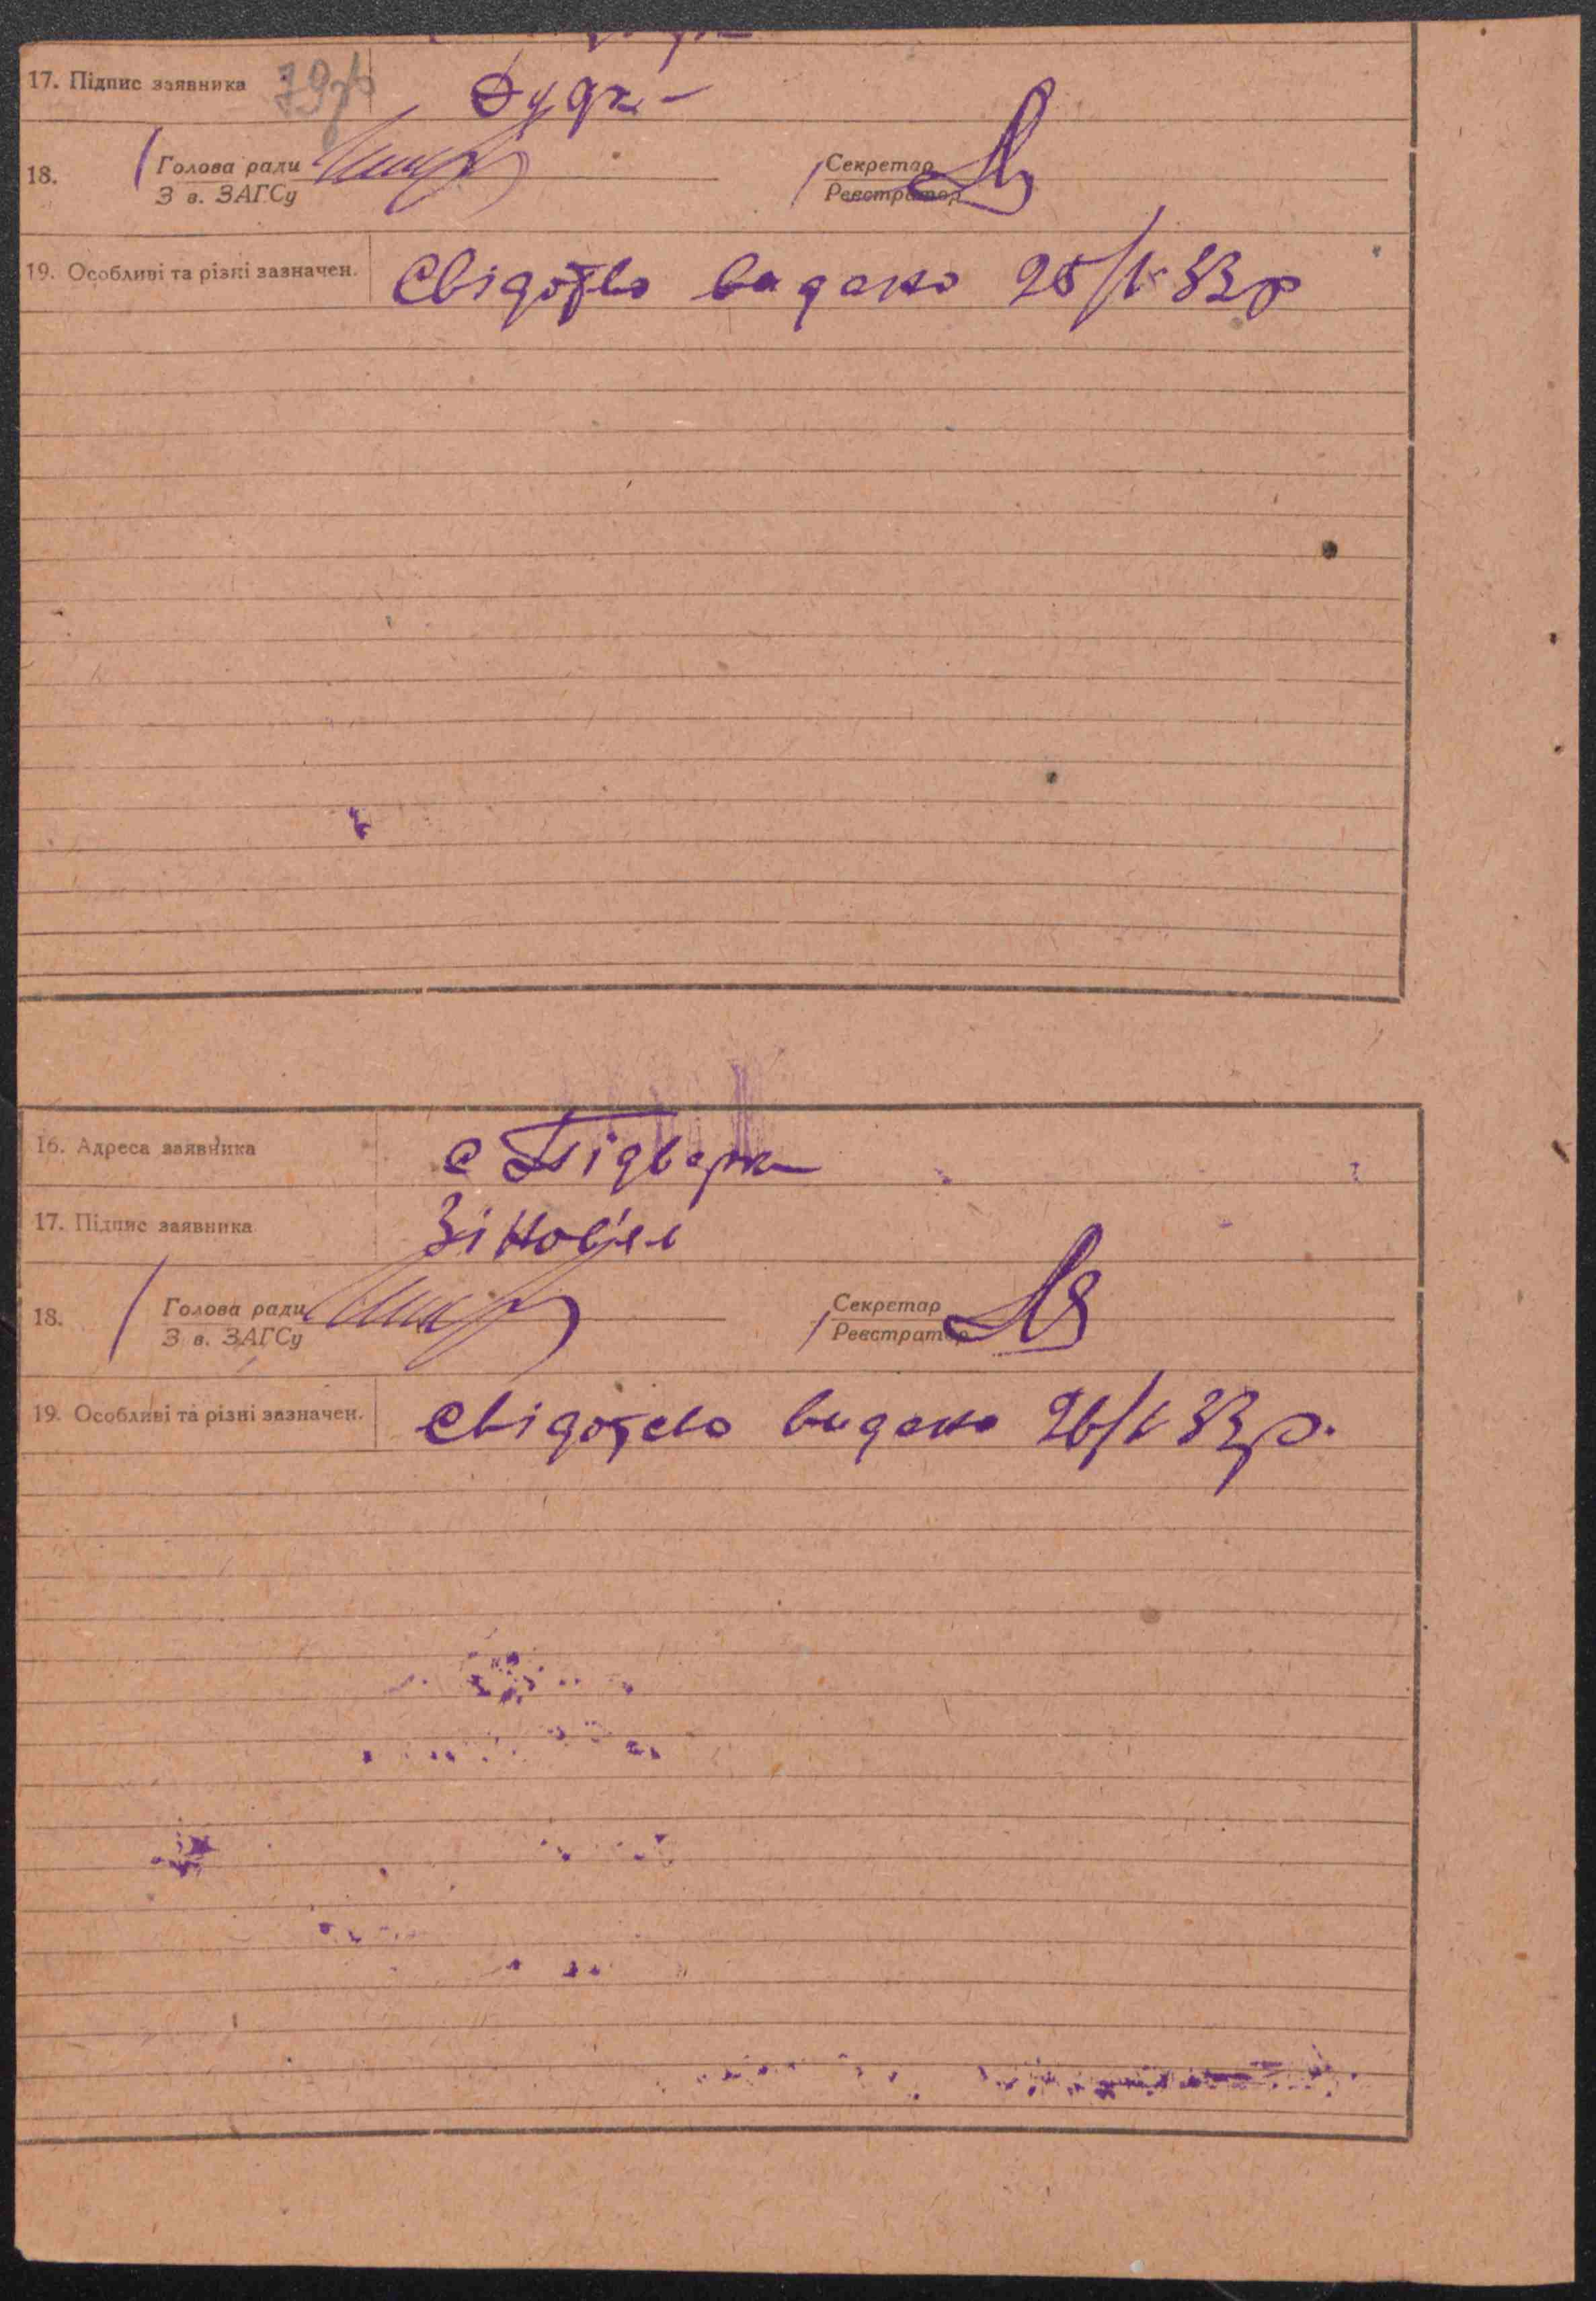 17. Підпис заявника 79зв Дудк
18. Голова ради Секретар
З в. ЗАГСу Реєстратор
19. Особливі та різні зазначен. Свідотво видано 25/V 33 р
16. Адреса заявника с Підварк
17. Підпис заявника Зіновієв
18. Голова ради Секретар
З в. ЗАГСу Реєстратор
19. Особливі та різні зазначен. Свідотсво видано 26/V 33 р.